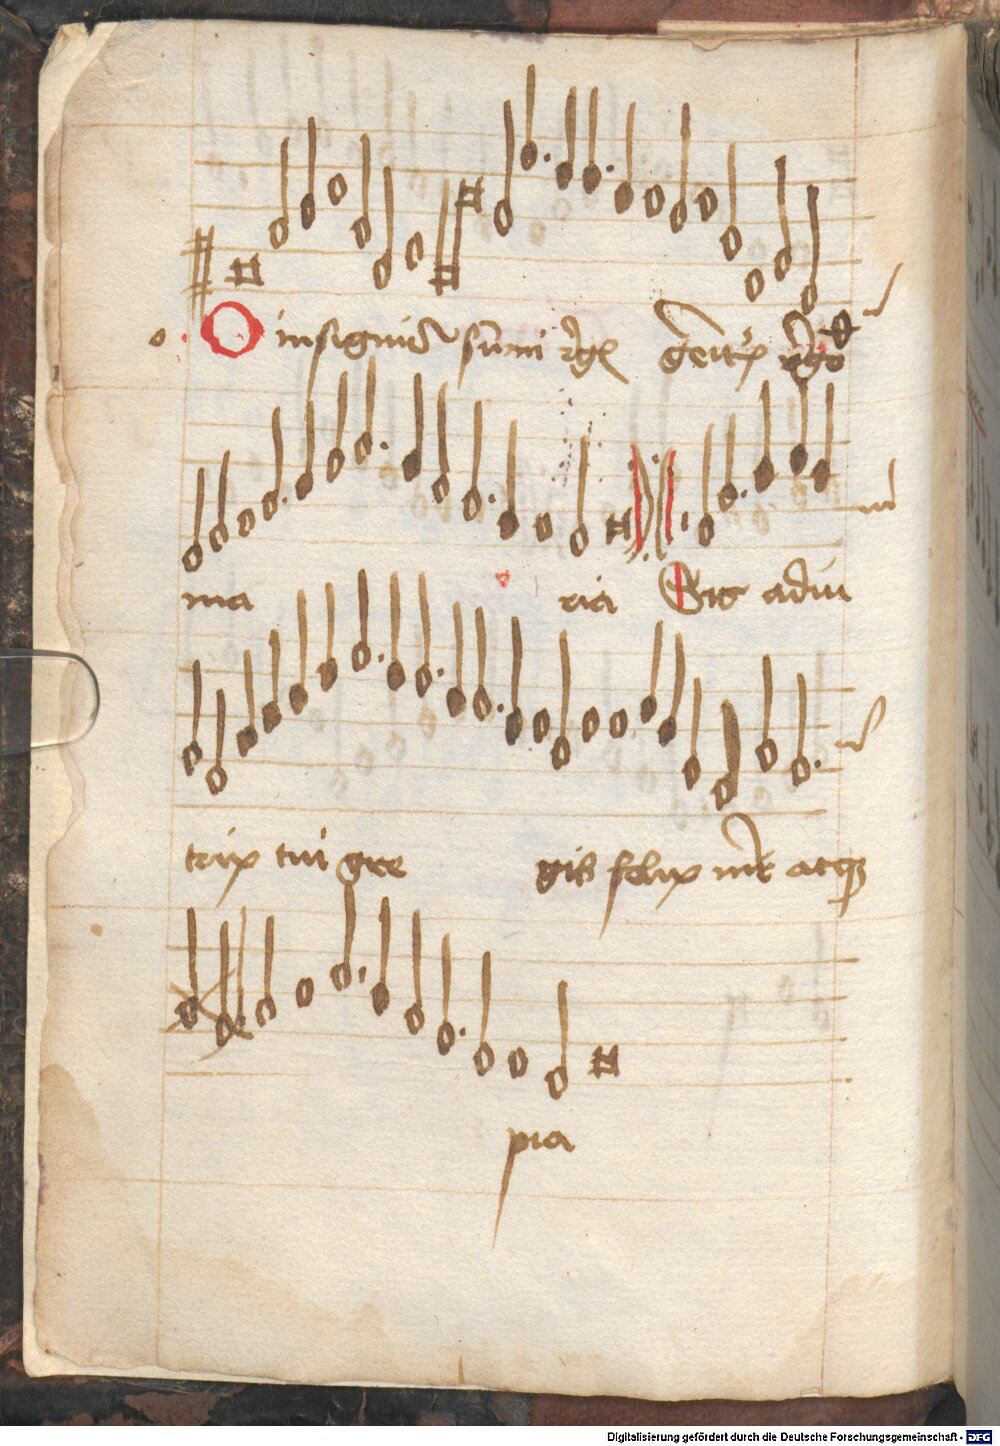 O insignis sum̄i regis genit͛x v̾go
ma ria Sis adiu
trix tui gre gis felix mr̄ atq₃
pia
Digitalisierung gefördert durch die Deutsche Forschungsgemeinschaft - DFG